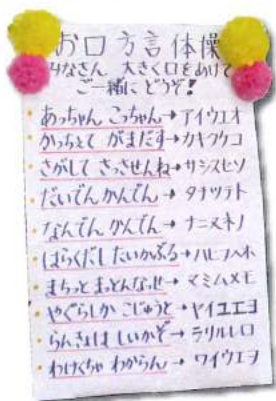 お口方言体操
みなさん 大きく口をあけて
ご一緒にどうぞ!
・あっちゃん こっちゃん→アイウエオ
・かっちぇて がまだす→カキクケコ
・さがして さっせんね→サシスセソ
・だいでん かんでん→タチツテト
・なんでん かんでん→ナニヌネノ
・はらくだし たいかぶる→ハヒフヘホ
・まちっと まっとんなっせ→マミムメモ
・やぐらしか こじゅうと→ヤイユエヨ
・らんきょは しいかぞ→ラリルレロ
・わけくちゃ わからん→ワイウエヲ